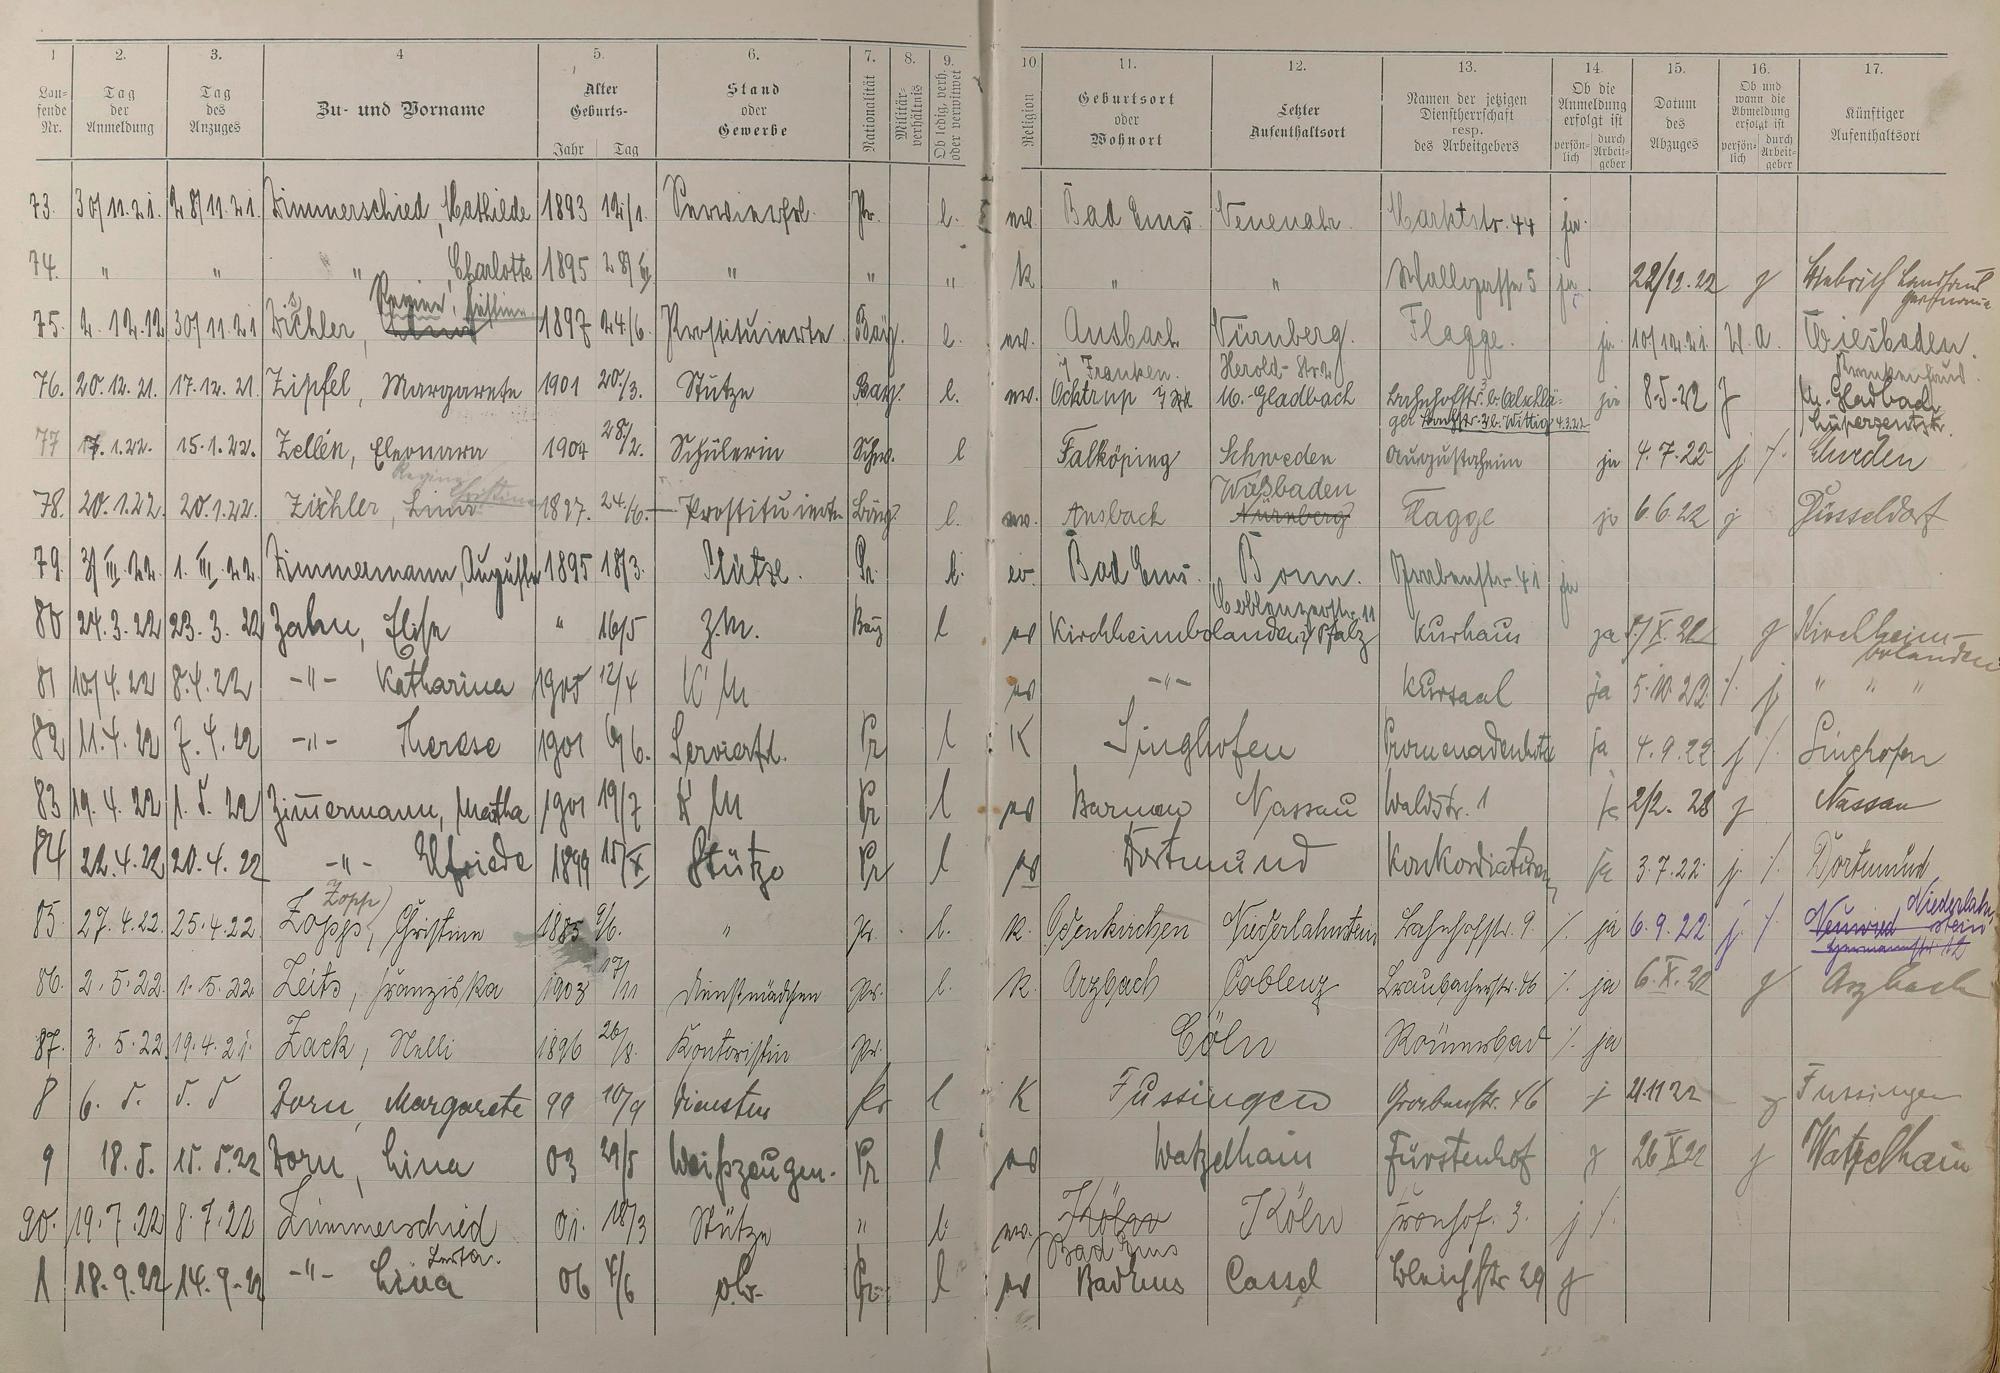 1 2. 3. 4 5. 6. 7. 8. 9. 10 11. 12. 13. 14. 15. 16. 17.
Lau- fende Nr. Tag der Anmeldung Tag des Anzuges Zu- und Vorname Alter Geburts- Jahr Tag Stand oder Gewerbe Nationalität Militär- verhältnis Ob ledig, verh. oder verwitwet Religion Geburtsort oder Wohnort Letzter Aufenthaltsort Namen der jetzigen Dienstherrschaft resp. des Arbeitgebers Ob die Anmeldung erfolgt ist persön- lich durch Arbeit- geber Datum des Abzuges Ob und wann die Abmeldung erfolgt ist persön- lich durch Arbeit- geber Künftiger Aufenthaltsort
73. 30/11.21. 28/11.21. Zimmerschied, Mathilde 1893 12/1. Servierfrl. Pr. l. ev. Bad Ems Neuenahr. Marktstr. 44 ja.
74. " " " Charlotte 1895 " " " K " " Wallgasse 5 ja. 22/12.22 j
Regine, Christine
75. 2.12.12 30/11.21 Zischler, 1897 24/6. Prostituierte Bay. l. ev. Ansbach Nürnberg. Flagge. ja 10/12.21. W. a. Wiesbaden.
i/ Franken. Herold-Str. Krankenhaus.
76. 20.12.21. 17.12.21 Zipfel, Margarete 1901 20./3. Stütze Bay. l. ev. Ochtrup M.-Gladbach Bahnhofstr. 3 b. Oelschlä- ja 8.5.22 J M. Gladbach
ger Bachstr. b. Wittig 4.3.22 Lüperzentstr.
77 17.1.22. 15.1.22. Zellén, Eleonara 1904 28./2. Schülerin Schw. l Falköping Schweden Augustaheim ja 4.7.22 j /. Schweden
Regine Christine Wiesbaden
78. 20.1.22. 20.1.22. Zischler, Lina 1897. 24./6. — Prostituierte Bay. l. ev. Ansbach Nürnberg Flagge ja 6.6.22 j Düsseldorf
79. 3/III.22. 1.III.22. Zimmermann, Auguste 1895 18/3. Stütze. Pr. l. ev. Bad Ems. Bonn. Grabenstr. 41 ja
Coblenzerstr. 11
80 24.3.22 23.3.22 Zahn, Elise " 16/5 Z.M. Bay l ev Kirchheimbolanden Pfalz Kurhaus ja 5/X.22 j Kirchheim-
bolanden
81 10/4.22 8.4.22 -"- Katharina 1905 12/4 K M ev -"- Kursaal ja 5.10.22 /. j " " "
82 11.4.22 7.4.22 -"- Therese 1901 6. Servierfrl. Pr l K Singhofen Promenadenhotel ja 4.9.22 j /. Singhofen
83 19.4.22 1.5.22 Zimmermann, Martha 1901 19/7 K M Pr l ev Nassau Waldstr. 1 ja 2/2.23 j Nassau
84 22.4.22 20.4.22 -"- Elfriede 1899 15/X Stütze Pr l ev Dortmund Konkordiaturm ja 3.7.22 j. /. Dortmund
Zopp) Niederlahn-
85. 27.4.22. 25.4.22. Zopp, Christine 1885 9/6. " Pr. l. K. Odenkirchen Niederlahnstein Bahnhofstr. 9. /. ja 6.9.22. j. /. Neuwied stein
Hermannstr. 12
86. 2.5.22. 1.5.22. Zeits, Franziska 1903 17/11 Dienstmädchen Pr. l. K. Arzbach Coblenz Braubacherstr. 46 /. ja 6.X.22 j Arzbach
87. 3.5.22. 19.4.21. Zack, Nelli 1896 26/8. Kontoristin Pr. Cöln Römerbad /. ja
8 6.5. 5.5 Zorn, Margarete 99 10/9 Dienstm Pr l K Fussingen Grabenstr. 46 j 21.11.22 j Fussingen
9 18.5. 15.5.22 Zorn, Lina 03 29/5 Weißzeugen. Pr l ev Watzelhain Fürstenhof j 26.X.22 j Watzelhain
90. 19.7.22 8.7.22 Zimmerschied 01. 18/3 Stütze " l. ev. Köln Köln Fronhof. 3. j /.
Berta. Bad Ems
1 18.9.22 14.9.22 -"- Lina 06 4/6 o.Gr. Pr. l ev Bad Ems Cassel Bleichstr 29 j